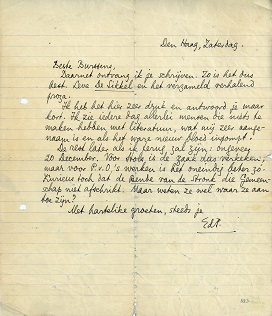 Den Haag, Zaterdag.
Beste Burssens,
Daarnet ontvang ik je schrijven. Zo is het dus
best. Leve De Sikkel en het verzameld verhalend
proza.
Ik heb het hier zeer druk en antwoord je maar
kort. Ik zie iedere dag allerlei mensen die niets te
maken hebben met literatuur, wat mij zeer aange-
naam is en als het ware nieuw bloed inpompt.
De rest later als ik terug zal zijn: ongeveer
20 December. Voor Stols is de zaak dus verkeken,
maar voor P.v.O.'s werken is het oneindig beter zo.
toch dat de van de Stronk die Gemeen-
schap niet afschrikt. Maar weten ze wel waar ze aan
toe zijn?
Met hartelijke groeten, steeds je
EdP.